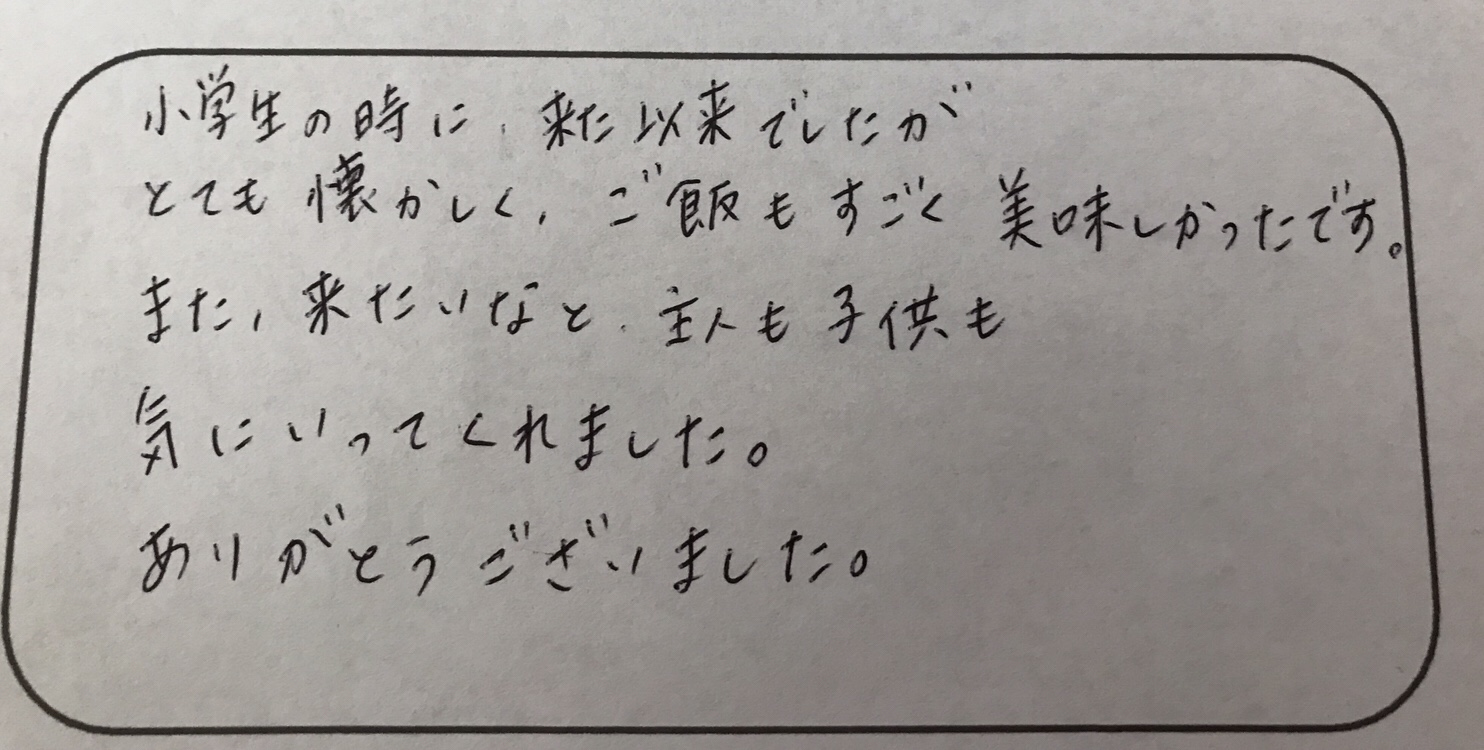 小学生の時に、来た以来でしたが
とても懐かしく、ご飯もすごく美味しかったです。
また、来たいなと、主人も子供も
気にいってくれました。
ありがとうございました。